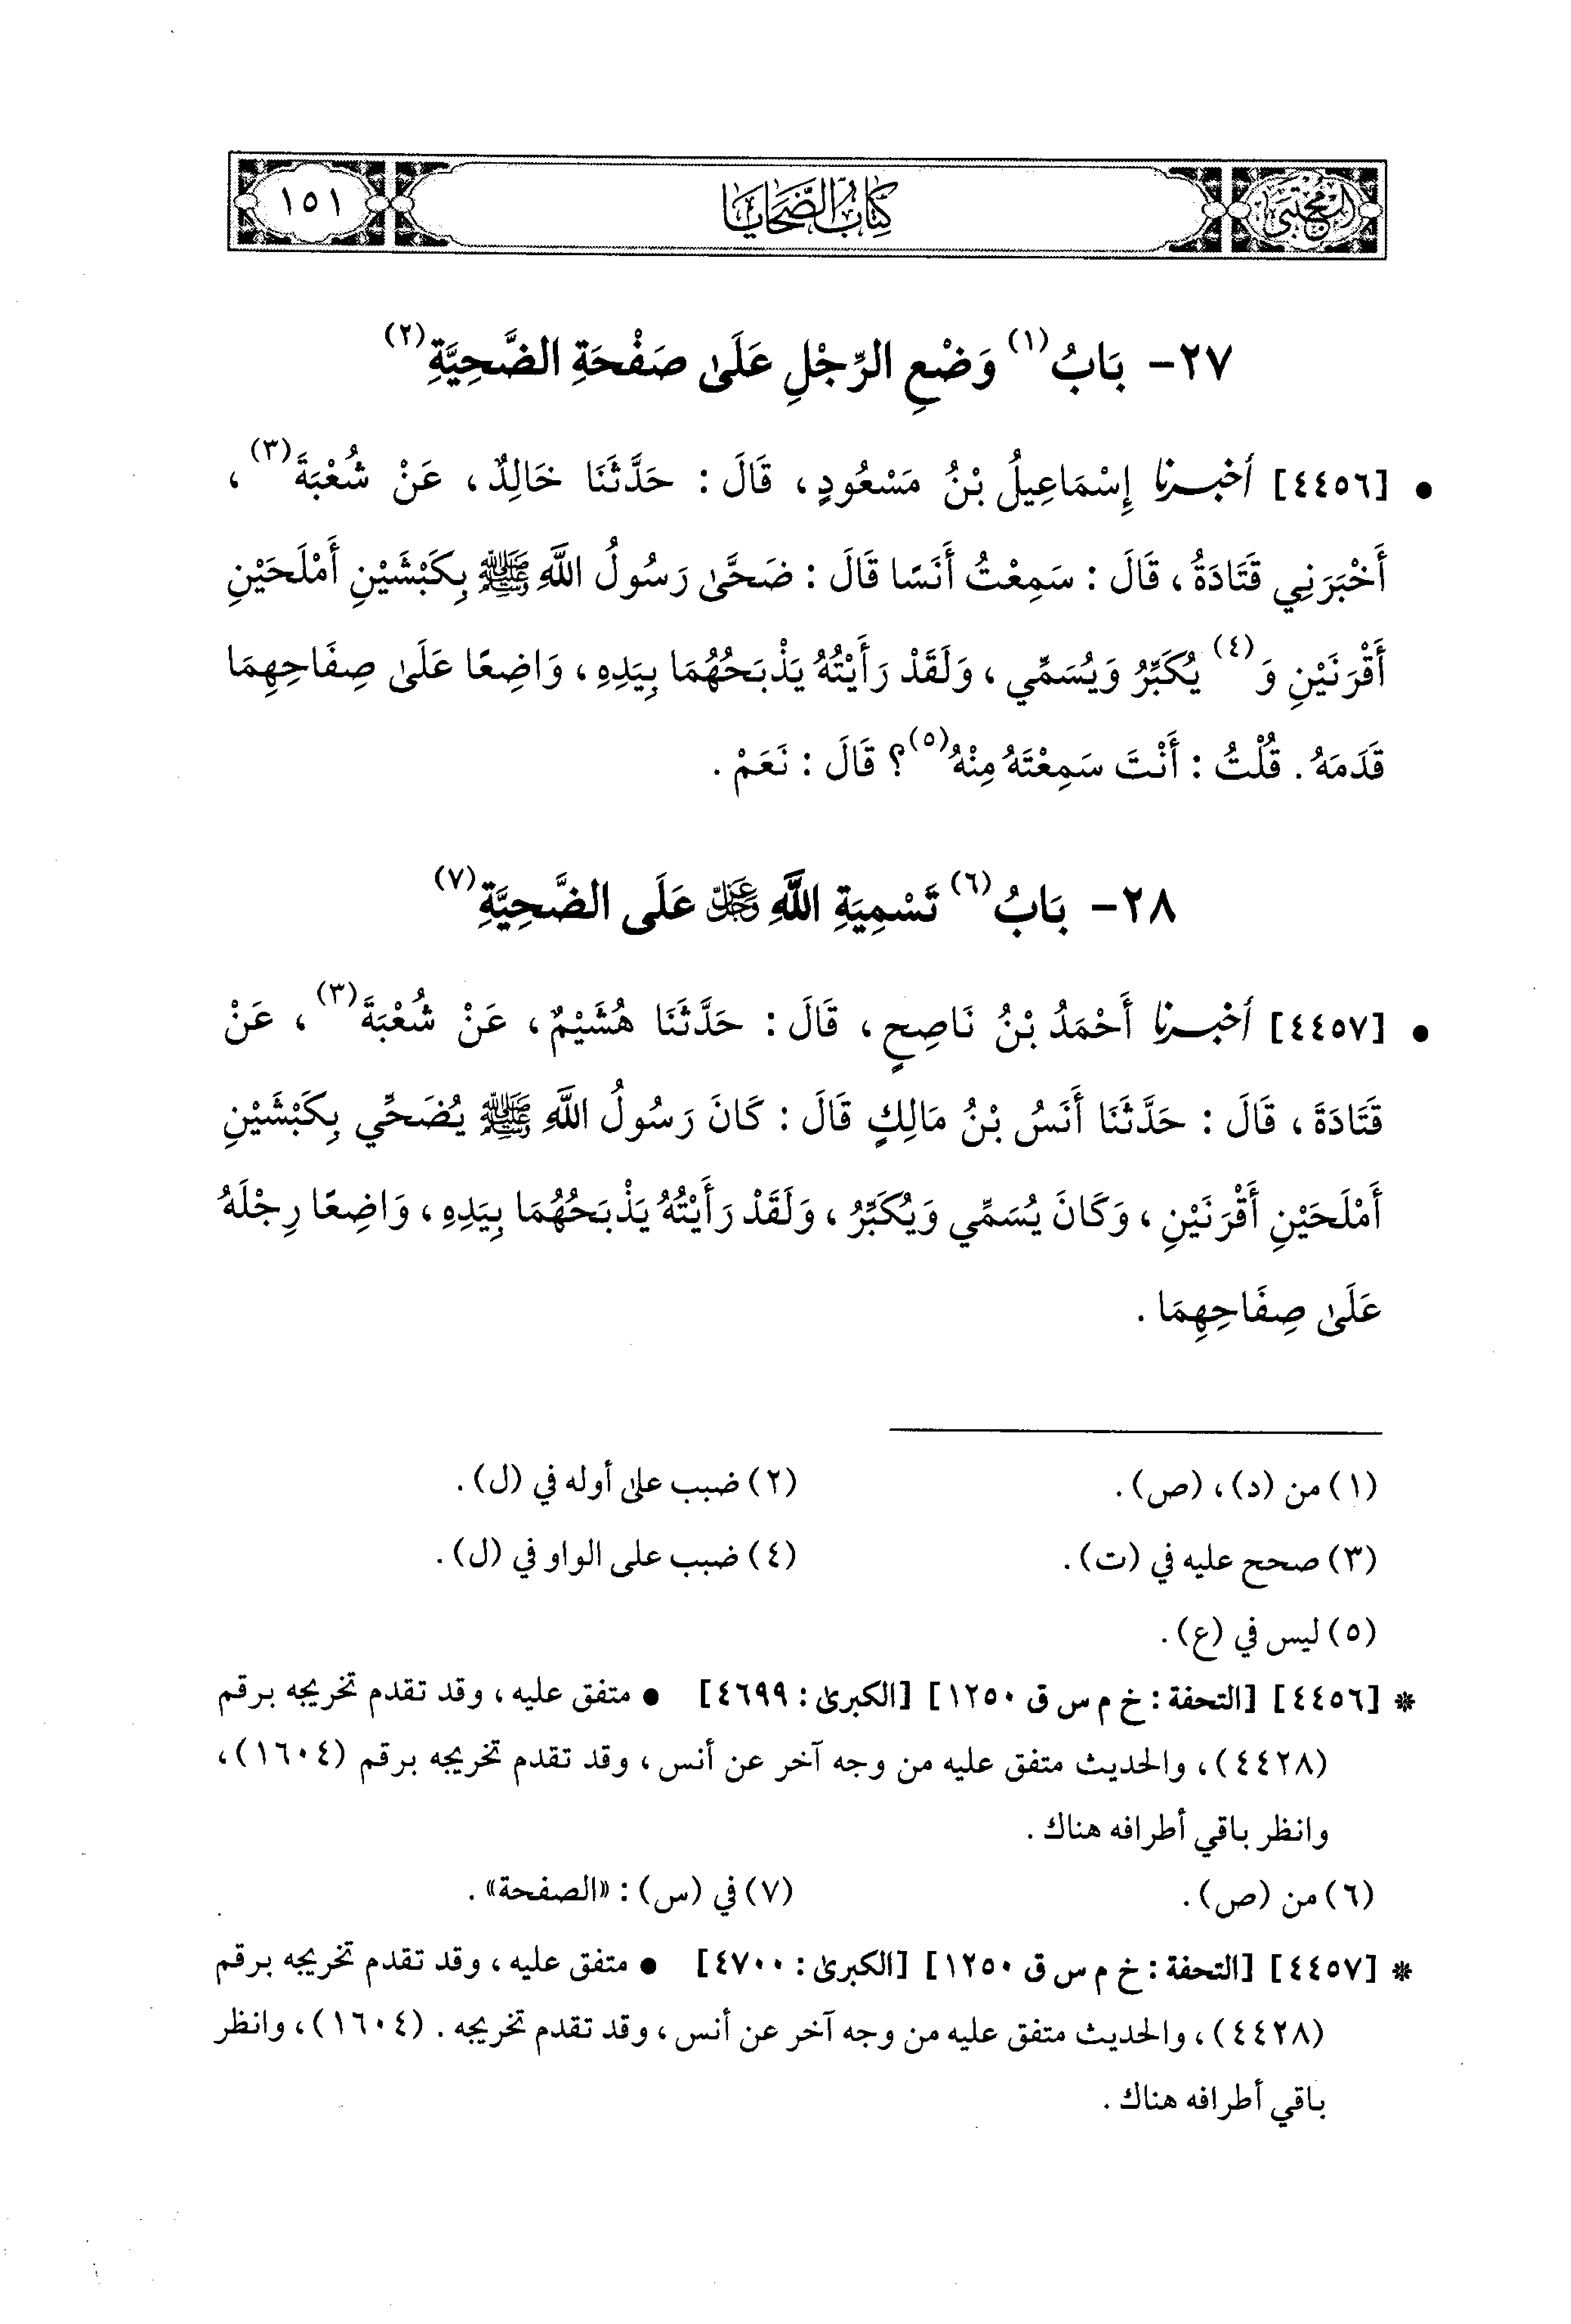 المجتبى كتاب الضحايا ١٥١
٢٧- بَابُ(١) وَضْعِ الرِّجْلِ عَلَىٰ صَفْحَةِ الضَّحِيَّةِ(٢)
• [٤٤٥٦] أخبرنا إِسْمَاعِيلُ بْنُ مَسْعُودٍ، قَالَ: حَدَّثَنَا خَالِدٌ، عَنْ شُعْبَةَ(٣)،
أَخْبَرَنِي قَتَادَةُ، قَالَ: سَمِعْتُ أَنَسًا قَالَ: ضَحَّىٰ رَسُولُ اللَّهِ ﷺ بِكَبْشَيْنِ أَمْلَحَيْنِ
أَقْرَنَيْنِ وَ(٤) يُكَبِّرُ وَيُسَمِّي، وَلَقَدْ رَأَيْتُهُ يَذْبَحُهُمَا بِيَدِهِ، وَاضِعًا عَلَىٰ صِفَاحِهِمَا
قَدَمَهُ. قُلْتُ: أَنْتَ سَمِعْتَهُ مِنْهُ(٥)؟ قَالَ: نَعَمْ.
٢٨- بَابُ(٦) تَسْمِيَةِ اللَّهِ عَزَّ وَجَلَّ عَلَى الضَّحِيَّةِ(٧)
• [٤٤٥٧] أخبرنا أَحْمَدُ بْنُ نَاصِحٍ، قَالَ: حَدَّثَنَا هُشَيْمٌ، عَنْ شُعْبَةَ(٣)، عَنْ
قَتَادَةَ، قَالَ: حَدَّثَنَا أَنَسُ بْنُ مَالِكٍ قَالَ: كَانَ رَسُولُ اللَّهِ ﷺ يُضَحِّي بِكَبْشَيْنِ
أَمْلَحَيْنِ أَقْرَنَيْنِ، وَكَانَ يُسَمِّي وَيُكَبِّرُ، وَلَقَدْ رَأَيْتُهُ يَذْبَحُهُمَا بِيَدِهِ، وَاضِعًا رِجْلَهُ
عَلَىٰ صِفَاحِهِمَا.
(١) من (د)، (ص). (٢) ضبب على أوله في (ل).
(٣) صحح عليه في (ت). (٤) ضبب على الواو في (ل).
(٥) ليس في (ع).
* [٤٤٥٦] [التحفة: خ م س ق ١٢٥٠] [الكبرىٰ: ٤٦٩٩] • متفق عليه، وقد تقدم تخريجه برقم
(٤٤٢٨)، والحديث متفق عليه من وجه آخر عن أنس، وقد تقدم تخريجه برقم (١٦٠٤)،
وانظر باقي أطرافه هناك.
(٦) من (ص). (٧) في (س): «الصفحة».
* [٤٤٥٧] [التحفة: خ م س ق ١٢٥٠] [الكبرىٰ: ٤٧٠٠] • متفق عليه، وقد تقدم تخريجه برقم
(٤٤٢٨)، والحديث متفق عليه من وجه آخر عن أنس، وقد تقدم تخريجه. (١٦٠٤)، وانظر
باقي أطرافه هناك.